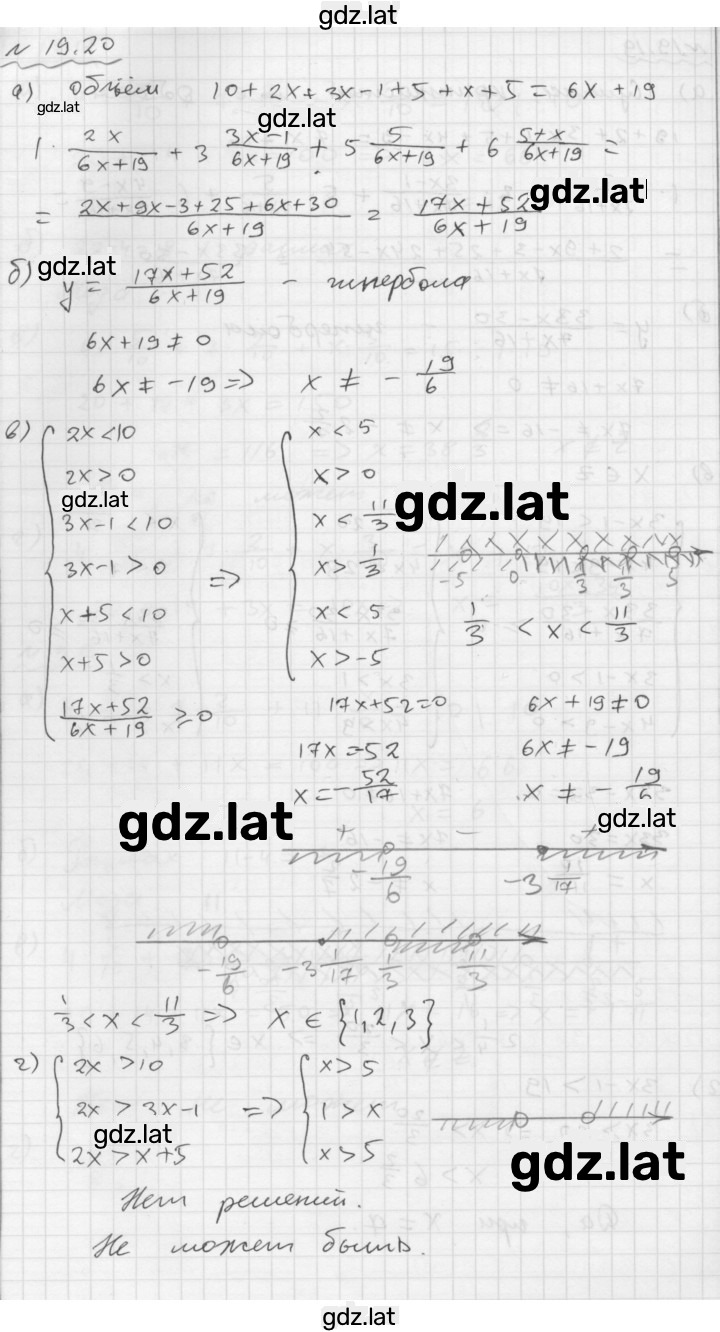 gdz.lat
N 19.20
а) объем 10+2x+3x-1+5+x+5 = 6x+19
gdz.lat
gdz.lat
1 · 2x/(6x+19) + 3 (3x-1)/(6x+19) + 5 5/(6x+19) + 6 (5+x)/(6x+19) =
gdz.lat
= (2x+9x-3+25+6x+30)/(6x+19) = (17x+52)/(6x+19)
gdz.lat
б) y = (17x+52)/(6x+19) - гипербола
6x+19 ≠ 0
6x ≠ -19 => x ≠ -19/6
в) { 2x<10 { x<5
2x>0 x>0
gdz.lat
gdz.lat
3x-1<10 x<11/3
3x-1>0 => x>1/3 -5 0 1/3 11/3 5
x+5<10 x<5 1/3 < x < 11/3
x+5>0 x>-5
(17x+52)/(6x+19) ≥0 17x+52=0 6x+19≠0
17x=-52 6x≠-19
x=-52/17 x ≠ -19/6
gdz.lat
gdz.lat
+ - +
-19/6 -3 1/17
-19/6 -3 1/17 1/3 11/3
1/3<x<11/3 => x ∈ {1,2,3}
г) { 2x >10 { x>5
2x > 3x-1 => 1>x
gdz.lat
2x>x+5 x>5
gdz.lat
Нет решений.
Не может быть.
gdz.lat